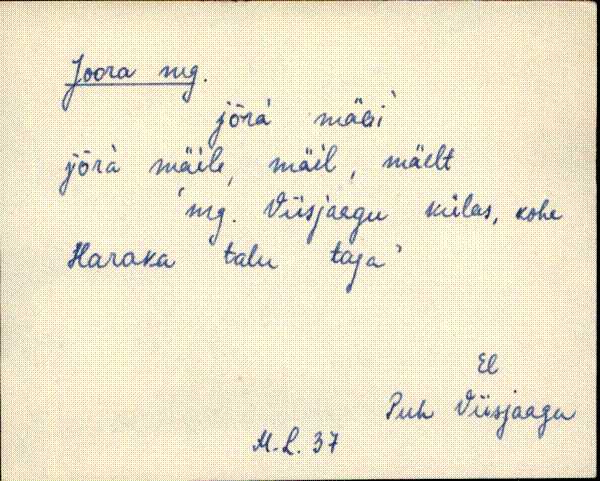 Joora mg.
jōrà mäèi
jōrà mäile, mäil, mäelt
'mg. Viisjaagu külas, kohe
Haraka talu taga'
El
Puh Viisjaagu
M.L. 37